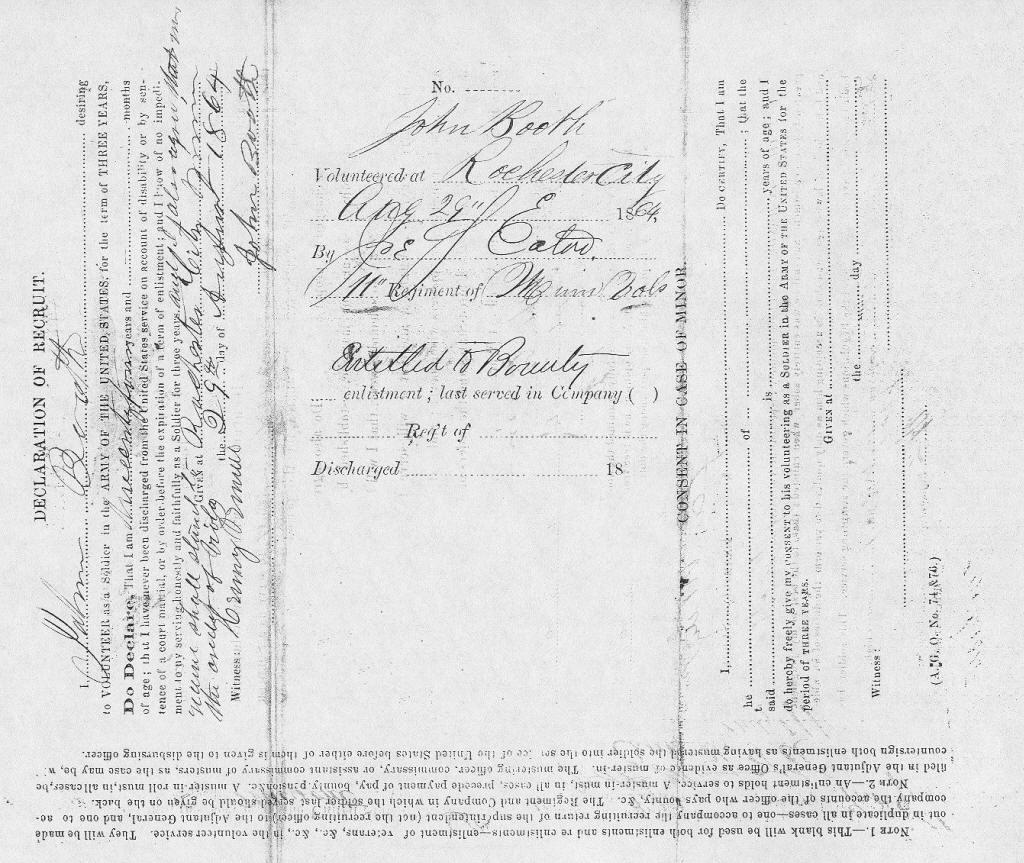 DECLARATION OF RECRUIT.
I, John Booth desiring
to VOLUNTEER as a Soldier in the ARMY OF THE UNITED STATES, for the term of THREE YEARS,
Do Declare, That I am years and months
of age; that I have never been discharged from the United States service on account of disability or by sen-
tence of a court martial, or by order before the expiration of a term of enlistment; and I know of no impedi-
ment to my serving honestly and faithfully as a Soldier for three years
name shall stand GIVEN at Rochester City Minn
the the 29th day of August 1864
Witness: John Booth
No.
John Booth
Volunteered at Rochester City
Aug 29" 1864,
By E Eaton.
11" Regiment of Minn Vols
Entitled to Bounty
enlistment; last served in Company ( )
Reg't of
Discharged 18
CONSENT IN CASE OF MINOR.
I, Do CERTIFY, That I am
he of ; that the
t
said is years of age; and I
do hereby freely give my CONSENT to his volunteering as a SOLDIER in the ARMY OF THE UNITED STATES for the
period of THREE YEARS.
GIVEN at
the day
Witness:
(A. G. O. No. 74 & 76.)
NOTE 1.—This blank will be used for both enlistments and re enlistments—enlistment of veterans, &c., &c., in the volunteer service. They will be made
out in duplicate in all cases—one to accompany the recruiting return of the superintendent (not the recruiting officer) to the Adjutant General, and one to ac-
company the accounts of the officer who pays bounty, &c. The Regiment and Company in which the soldier last served should be given on the back.
NOTE 2.—An enlistment holds to service. A muster-in must, in all cases, precede payment of pay, bounty, pension, &c. A muster-in roll must, in all cases, be
filed in the Adjutant General's Office as evidence of muster-in. The mustering officer, commissary, or assistant commissary of musters, as the case may be, w
countersign both enlistments as having mustered the soldier into the service of the United States before either of them is given to the disbursing officer.